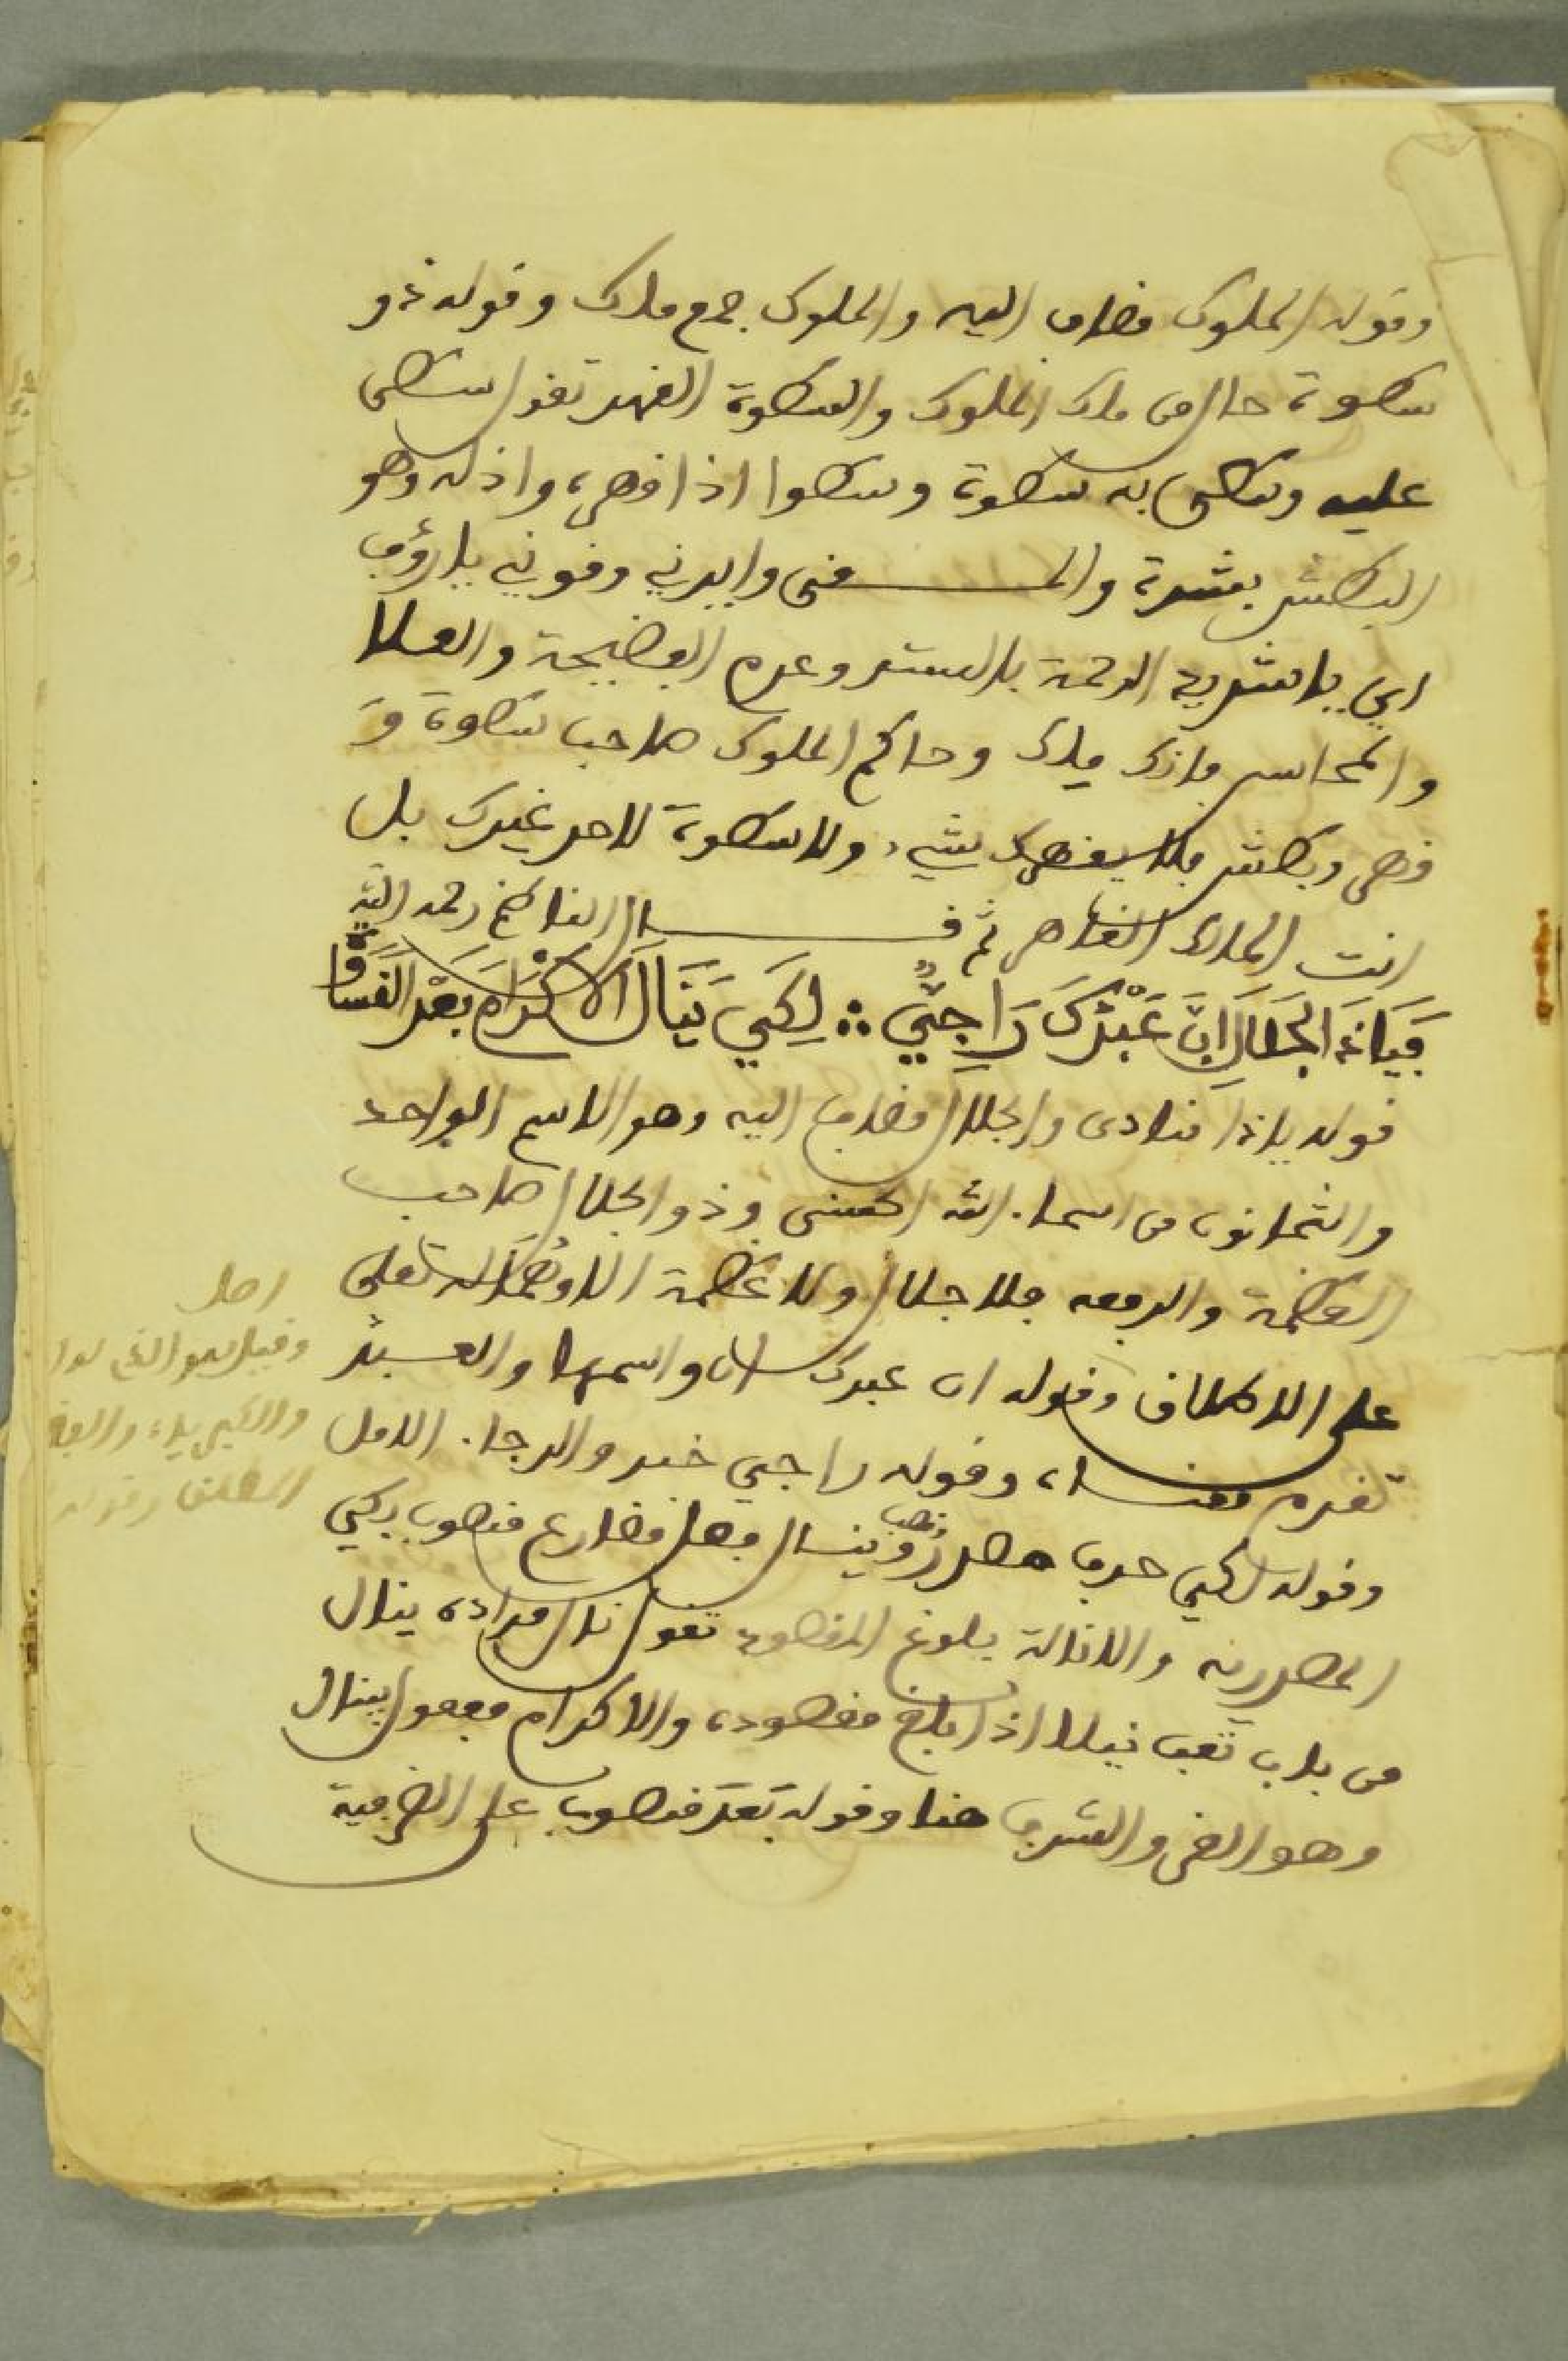 وقوله الملوك مضاف اليه والملوك جمع ملك وقوله ذو
سطوة حال من ملك الملوك والسطوة القهر تقول سطى
عليه وسطى به سطوة وسطوا اذا قهره واذله وهو
البطش بشدة والمعنى وايدني وقوني يا رؤف
اي يا شديد الرحمة بالستر وعدم الفضيحة والعلا
والمحاسن فانك ملك وحاكم الملوك صاحب سطوة و
قهر وبطش فلا يقهرك شيء ولا سطوة لاحد غيرك بل
انت الملك القاهر ثم قال الناظم رحمه الله
فَيَا ذَا الْجَلَالِ اِنَّ عَبْدَكَ رَاجِيٌ ∴ لِكَيْ يَنَالَ الْاِكْرَامَ بَعْدَ الْقَسَاوَةِ
قوله يا ذا منادى والجلال مضاف اليه وهو الاسم الواحد
والثمانون من اسماء الله الحسنى وذو الجلال صاحب
العظمة والرفعه فلا جلال ولا عظمة الا وهما له تعلى
على الاطلاق وقوله ان عبدك ان واسمها والعبد
تقدم معناه وقوله راجي خبر والرجاء الامل
وقوله لكي حرف مصدر ونصب وينال فعل مضارع منصوب بكي
المصدرية والانالة بلوغ المقصود تقول نال مراده ينال
من باب تعب نيلا اذا بلغ مقصوده والاكرام مفعول ينال
وهو العز والشرف هنا وقوله بعد منصوب على الظرفية
اصل
وقيل هو الذي له
والكبرياء
المطلق وقوله